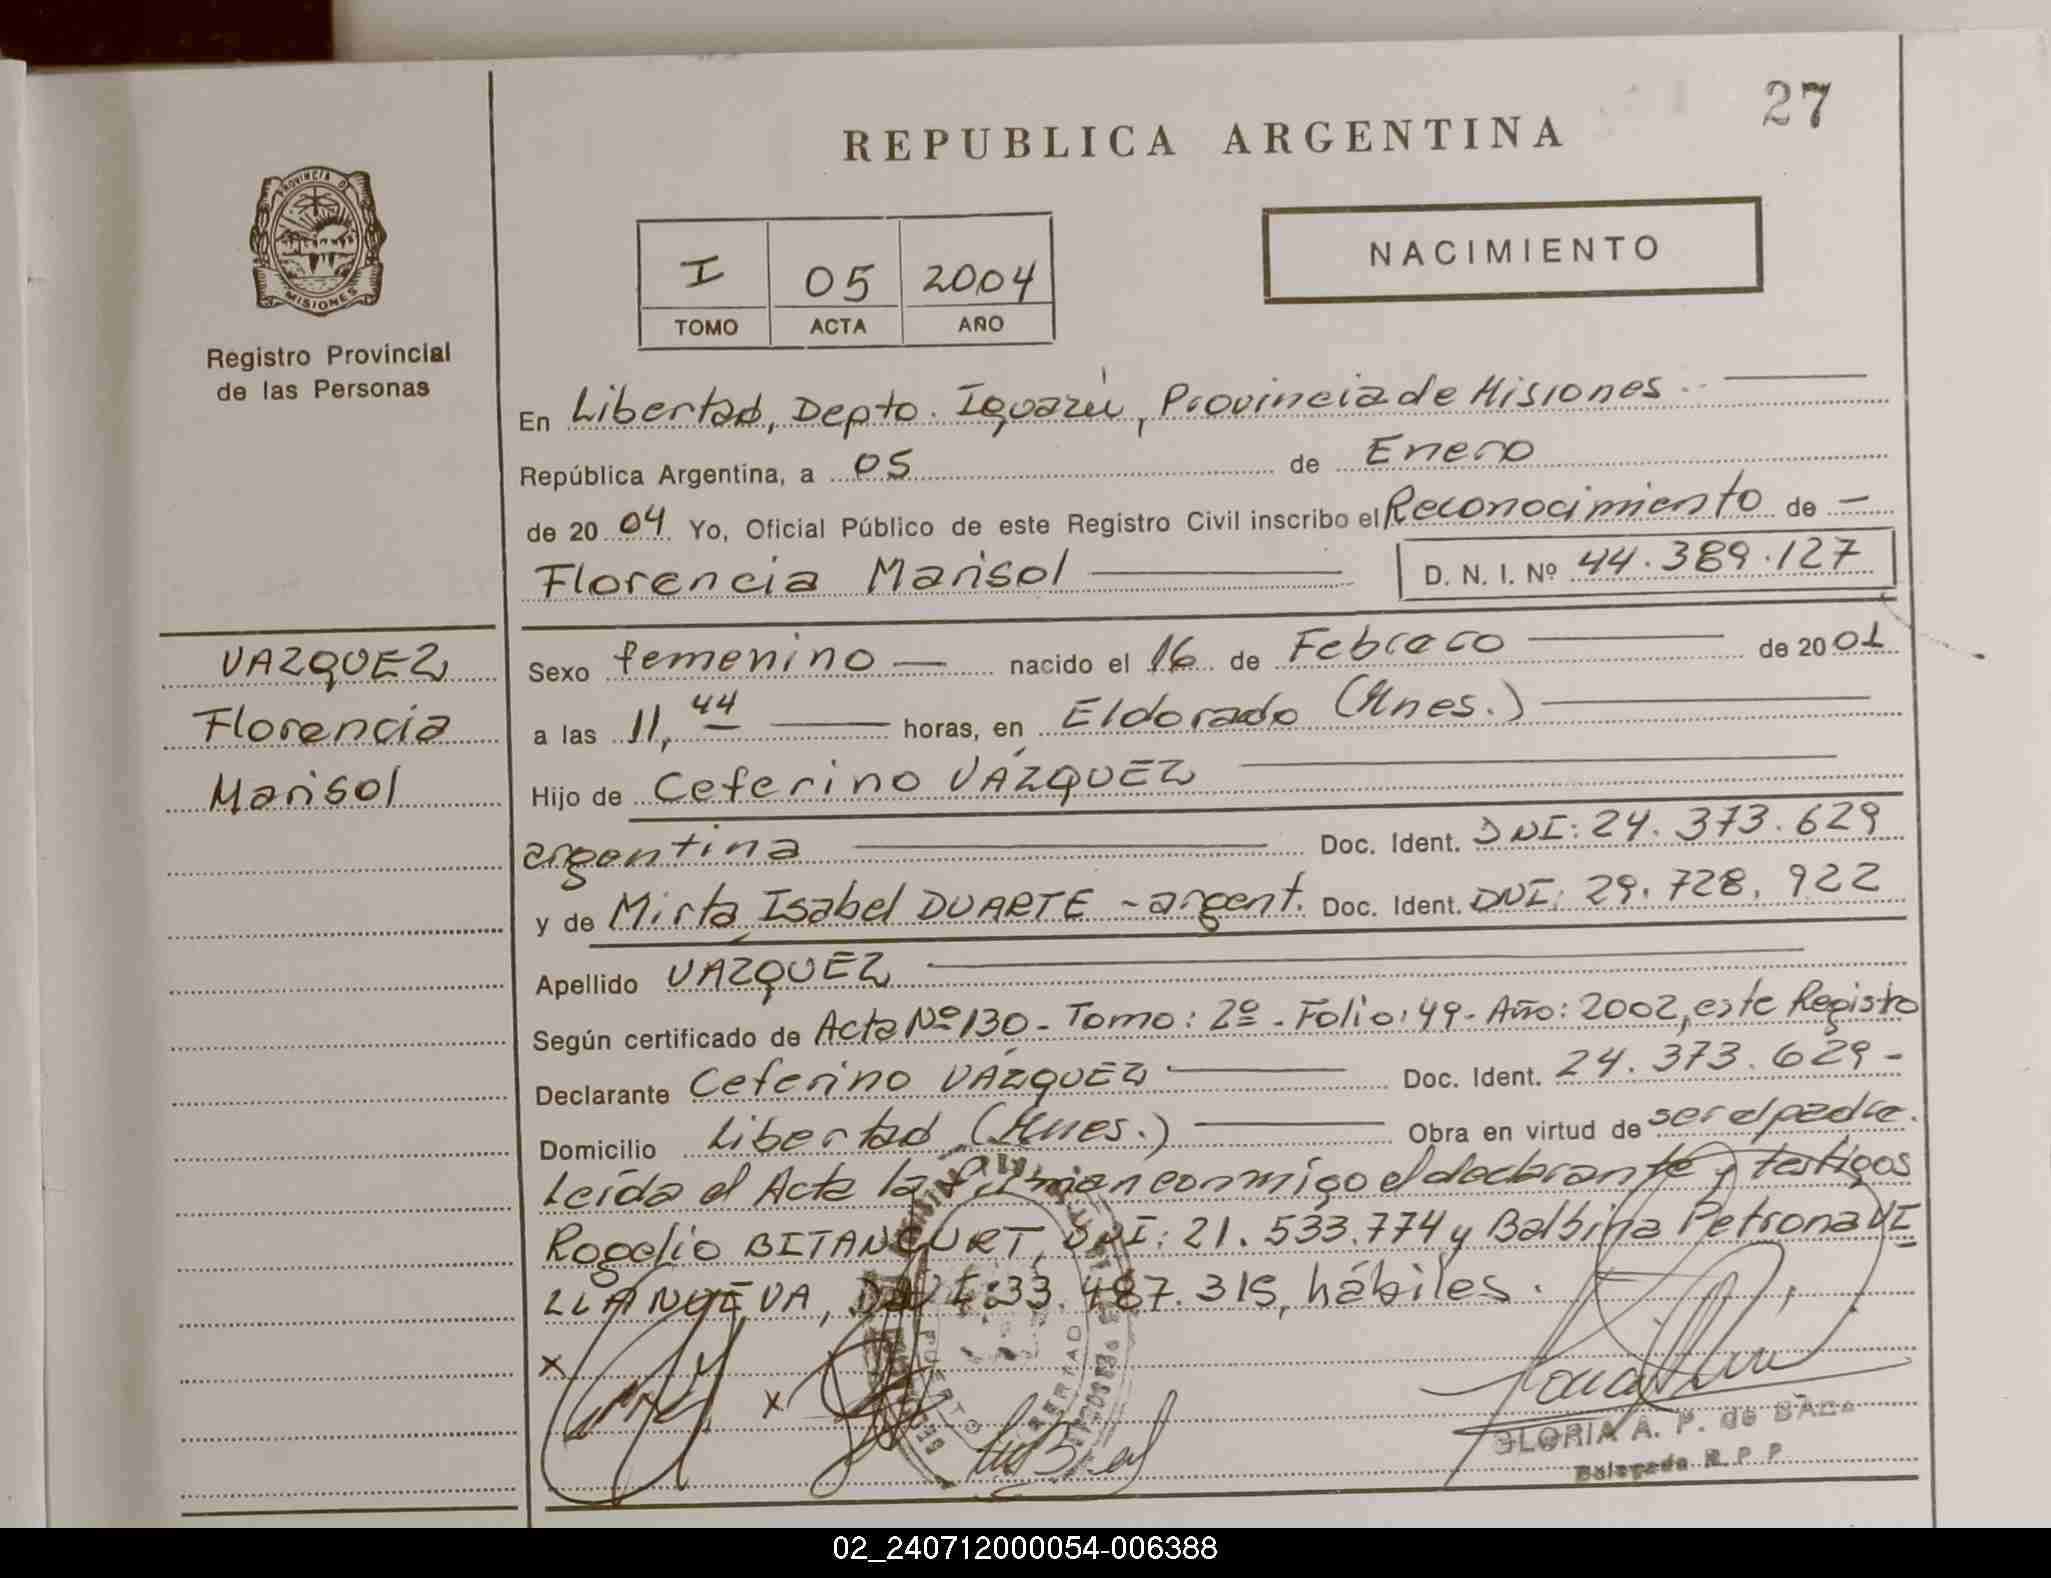 27
REPUBLICA ARGENTINA
PROVINCIA DE
MISIONES
Registro Provincial
de las Personas
I 05 2004
TOMO ACTA AÑO
NACIMIENTO
En Libertad, Depto. Iguazú, Provincia de Misiones
República Argentina, a 05 de Enero
de 2004 Yo, Oficial Público de este Registro Civil inscribo el Reconocimiento de
Florencia Marisol D. N. I. Nº 44.389.127
VAZQUEZ
Florencia
Marisol
Sexo femenino nacido el 16 de Febrero de 2001
a las 11,44 horas, en Eldorado (Mnes.)
Hijo de Ceferino VÁZQUEZ
argentina Doc. Ident. DNI: 24.373.629
y de Mirta Isabel DUARTE - argent. Doc. Ident. DNI: 29.728.922
Apellido VAZQUEZ
Según certificado de Acta Nº 130 - Tomo: 2º - Folio: 49 - Año: 2002, este Registro
Declarante Ceferino VÁZQUEZ Doc. Ident. 24.373.629 -
Domicilio Libertad (Mnes.) Obra en virtud de ser el padre.
Leída el Acta la firman conmigo el declarante y testigos
Rogelio BITANCURT, DNI: 21.533.774 y Balbina Petrona VI
LLANUEVA, DNI: 33.487.315, hábiles.
x x
PUERTO LIBERTAD
GLORIA A. P. de BÁEZ
Delegada R. P. P.
02_240712000054-006388